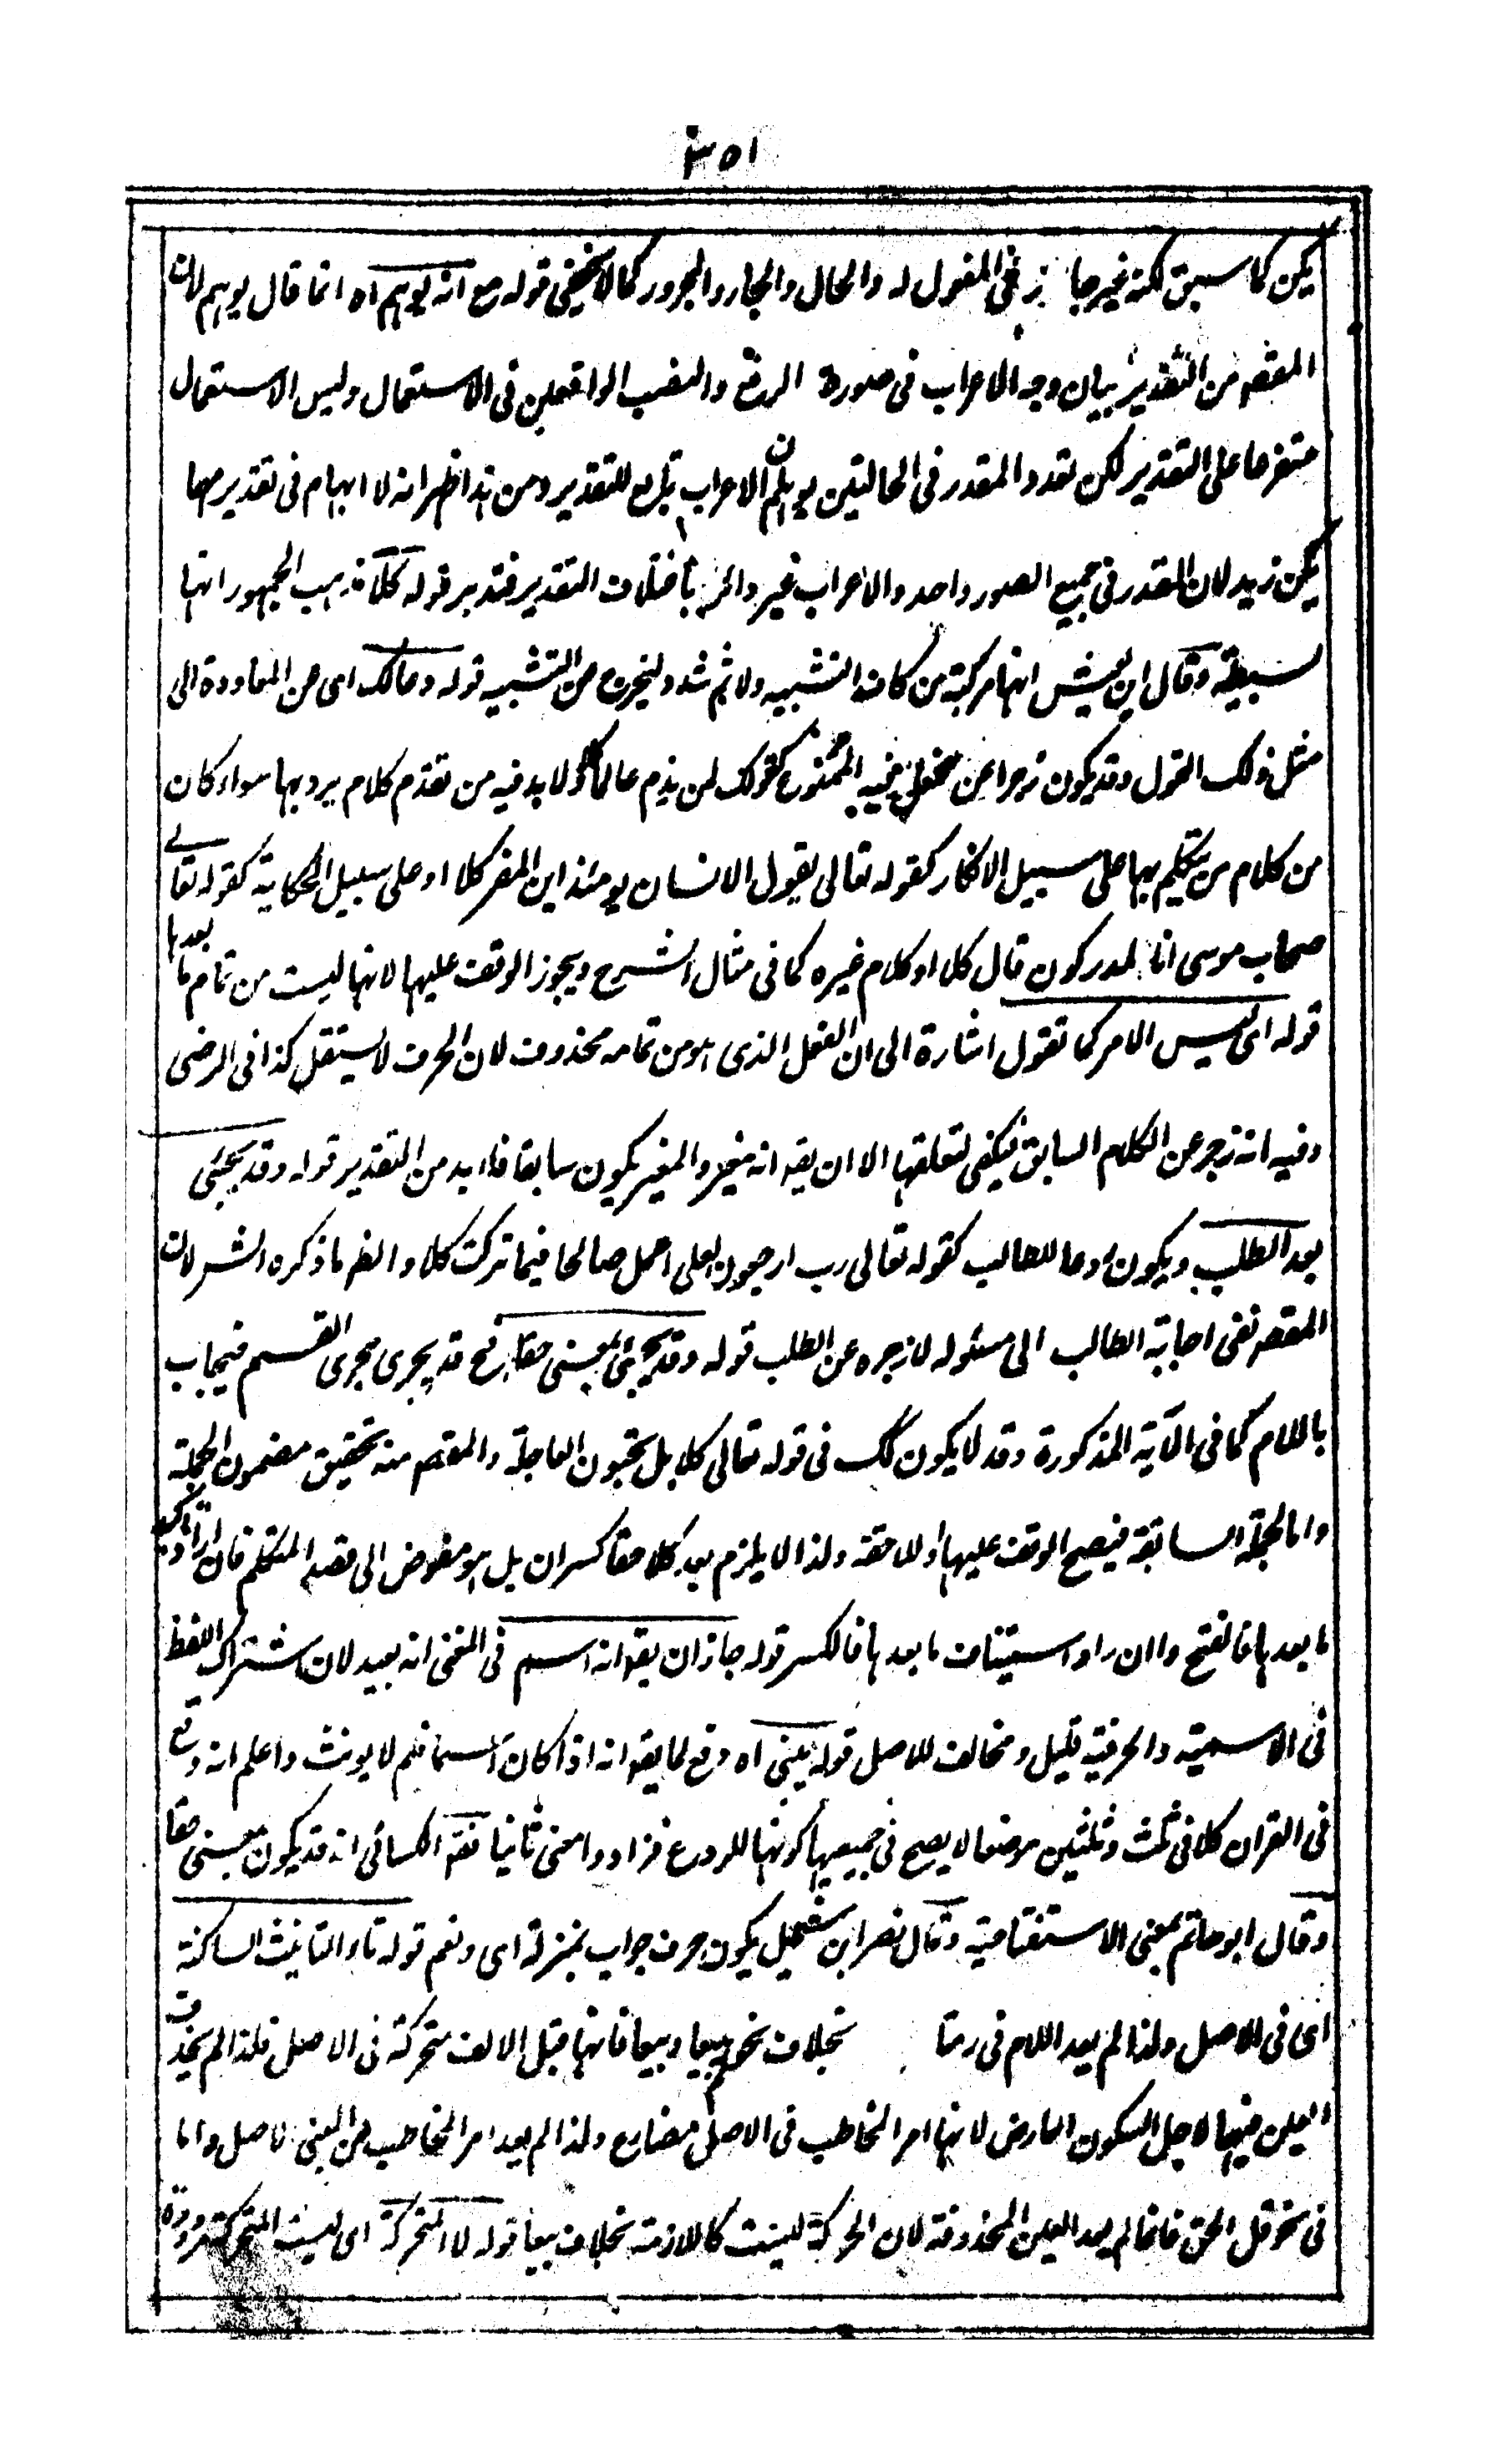 ٣٥١
يكن كما سبق لكنه غير جائز فى المفعول له والحال والجار والمجرور كما لا يخفى قوله مع انه يوهم اه انما قال يوهم لان
المقصم من التقدير بيان وجه الاعراب فى صورة الرفع والنصب الواقعين فى الاستعمال وليس الاستعمال
متفرعا على التقدير لكن تعدد المقدر فى الحالتين يوهم ان الاعراب تابع للتقدير ومن هذا ظهر انه لا ايهام فى تقدير مهما
يكن زيد لان المقدر فى جميع الصور واحد والاعراب غير دائر باختلاف التقدير فتدبر قوله كلا مذهب الجمهور انها
بسيطة وقال ابن يعيش انها مركبة من كاف التشبيه ولا ثم شدد ليخرج عن التشبيه قوله دعا لك اى عن المعاودة الى
مثل ذلك القول وقد يكون زجرا عن فعل غيبه الممنوع كقولك لمن يذم عالما كلا ولا بد فيه من تقدم كلام يرد بها سواء كان
من كلام من يتكلم بها على سبيل الانكار كقوله تعالى يقول الانسان يومئذ اين المفر كلا او على سبيل الحكاية كقوله تعالى
صحاب موسى انا لمدركون قال كلا او كلام غيره كما فى مثال الشرح ويجوز الوقف عليها لانها ليست من تمام ما بعدها
قوله اى ليس الامر كما تقول اشارة الى ان الفعل الذى هو من تمامه محذوف لان الحرف لا يستقل كذا فى الرضى
وفيه انه زجر عن الكلام السابق فيكفى لتعلقها الا ان يقه انه مغير والمغير يكون سابقا فلا بد من التقدير قوله وقد يجئى
بعد الطلب ويكون ردعا للطالب كقوله تعالى رب ارجعون لعلى اعمل صالحا فيما تركت كلا والظم ما ذكره الشر لان
المقصم نفى اجابة الطالب الى مسئوله لا زجره عن الطلب قوله وقد يجئى بمعنى حقا رح قد يجرى مجرى القسم فيجاب
باللام كما فى الآية المذكورة وقد لا يكون كك فى قوله تعالى كلا بل تحبون العاجلة والمقصم منه تحقيق مضمون الجملة
واما لجملة السابقة فيصح الوقف عليها او للاحقة ولذا لا يلزم بعد كلا حقا كسر ان بل هو مفوض الى قصد المتكلم فان اراد تاكيد
ما بعدها فالفتح وان اراد استيناف ما بعدها فالكسر قوله جاز ان يقه انه اسم فى المغنى انه بعيد لان اشتراك اللفظ
فى الاسمية والحرفية قليل ومخالف للاصل قوله يبنى اه دفع لما يقه انه اذا كان اسما فلم لا يونث واعلم انه وقع
فى القران كلا فى ثلث وثلثين موضعا لا يصح فى جميعها كونها للردع فزادوا معنى ثانيا فقه الكسائى انه قد يكون بمعنى حقا
وقال ابو حاتم بمعنى الا استفتاحية وقال نضر ابن شميل يكون حرف جواب بمنزلة اى ونعم قوله تاء التانيث الساكنة
اى فى الاصل ولذا لم يعد اللام فى رمتا بخلاف نحو بيعا وبيعا فانها قبل الالف متحركة فى الاصل فلذا لم يحذف
العين فيها لاجل السكون العارض لانها امر المخاطب فى الاصل مضارع ولذا لم يعد امر المخاطب من المبنى لاصل واما
فى نحو قل الحق فانما لم يعد العين المحذوفة لان الحركة ليست كاللازمة بخلاف بيعا قوله لا المتحركة اى ليست المتحركة مرودة